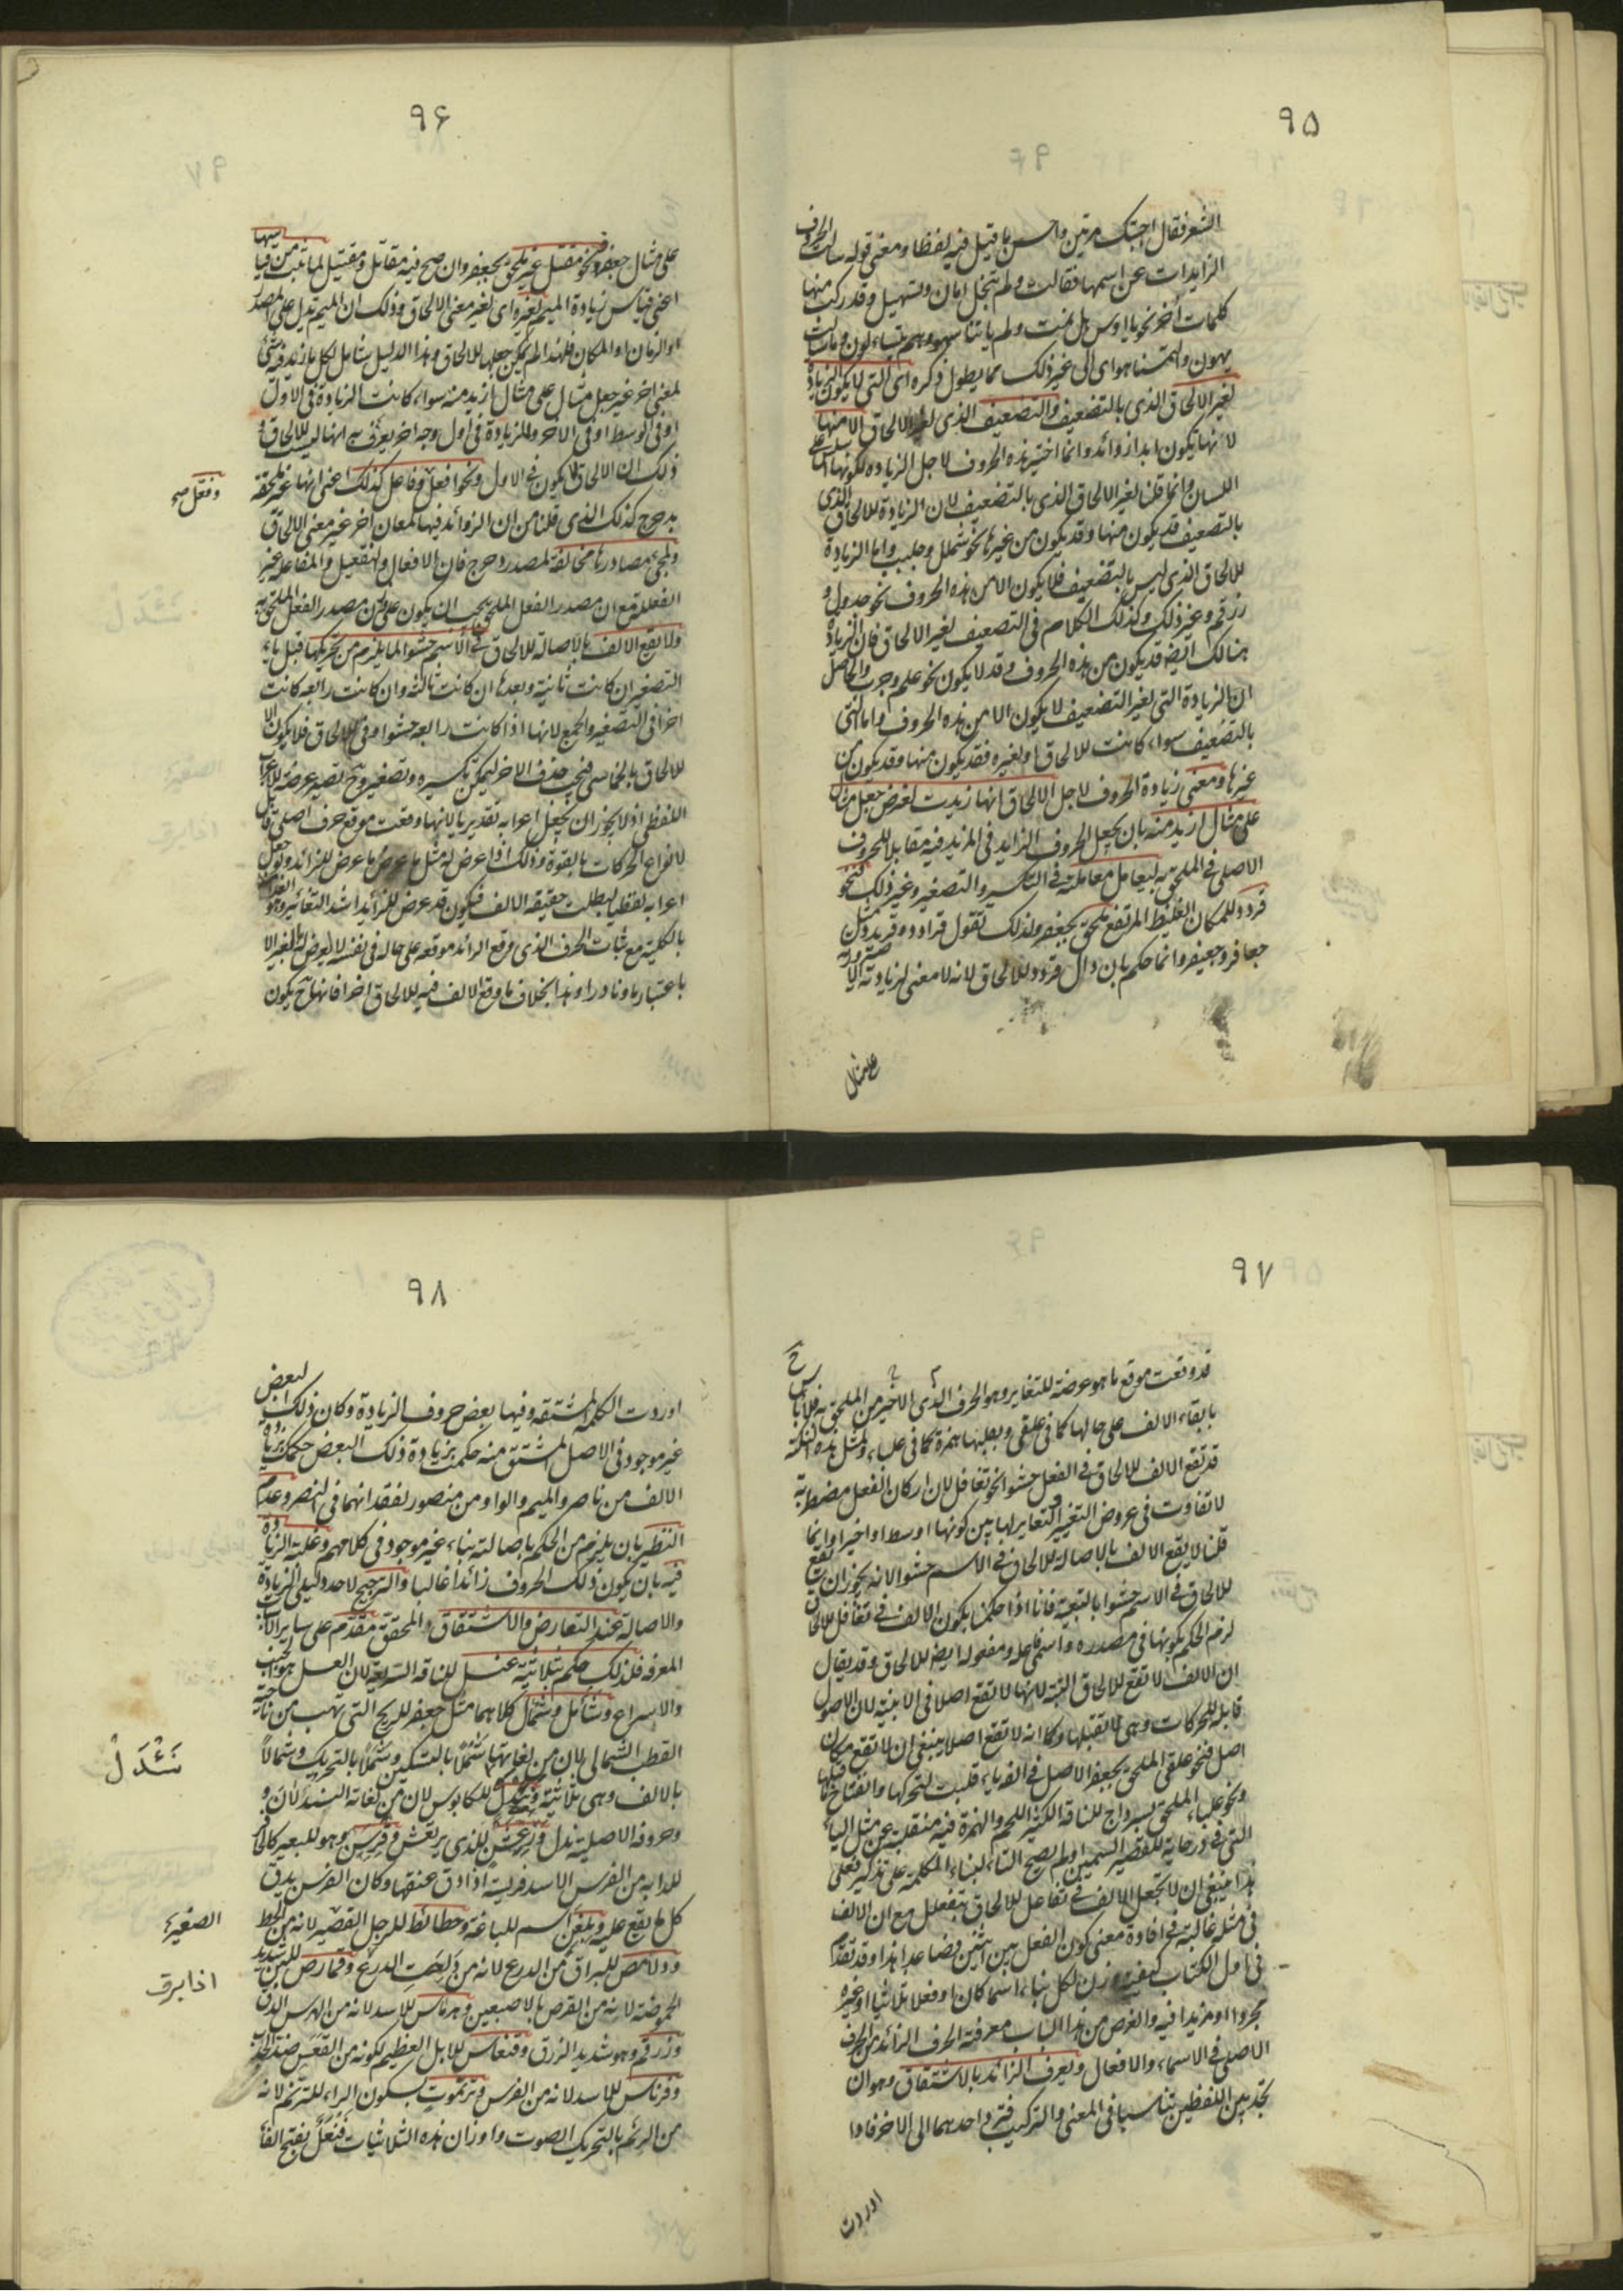 ٩٥
الشعر فقال اجبتك مرتين واحسن ما قيل فيه لفظا ومعنى قوله سالت الحروف
الزايدات عن اسمها فقالت ولم تبخل امان وتسهيل وقد ركب منها
كلمات أخر نحو يا اوس هل نمت ولم ياتنا سهو وهم يتساءلون وما سالت
يهون والتمسنا هواى الى غير ذلك مما يطول ذكره اى التي لا يكون الزيادة
لغير الالحاق الذى بالتضعيف والتضعيف الذى لغير الالحاق الا منها
لا انها يكون ابدا زوائد وانما اختير هذه الحروف لاجل الزيادة لكونها اسلس على
اللسان وانما قلنا لغير الالحاق الذى بالتضعيف لان الزيادة للالحاق الذى
بالتضعيف قد يكون منها وقد يكون من غيرها نحو شملل وجلبب واما الزيادة
للالحاق الذى ليس بالتضعيف فلا يكون الا من هذه الحروف نحو جدول و
زرقم وغير ذلك وكذلك الكلام فى التضعيف لغير الالحاق فان الزيادة
هنالك ايضا قد يكون من هذه الحروف وقد لا يكون نحو علم وجرب والحاصل
ان الزيادة التى لغير التضعيف لا يكون الا من هذه الحروف واما التى
بالتضعيف سواء كانت للالحاق او لغيره فقد يكون منها وقد يكون من
غيرها ومعنى زيادة الحروف لاجل الالحاق انها زيدت لغرض جعل مثال
على مثال ازيد منه بان يجعل الحروف الزايد فى المزيد فيه مقابلا للحروف
الاصلى فى الملحق به ليعامل معاملته فى التكسير والتصغير وغير ذلك فنحو
قردد للمكان الغليظ المرتفع ملحق بجعفر ولذلك تقول قرادد وقريدد مثل
جعافر وجعيفر وانما حكم بان دال قردد للالحاق لانه لا معنى لزيادته الا صيرورته
على مثال
٩٦
على مثال جعفر ونحو مقتل غير ملحق بجعفر وان صح فيه مقاتل ومقيتل لما ثبت من قياسها
اعنى قياس زيادة الميم لغيره اى لغير معنى الالحاق وذلك ان الميم تدل على المصدر
او الزمان او المكان فلهذا لم يمكن جعلها للالحاق وهذا الدليل شامل لكل ما زيد فيه شئ
لمعنى اخر غير جعل مثال على مثال ازيد منه سواء كانت الزيادة فى الاول
او فى الوسط او فى الاخر وللزيادة فى اول وجه اخر يعرف به انها ليست للالحاق و
ذلك ان الالحاق لا يكون فى الاول ونحو افعل وفاعل كذلك اعنى انها غير ملحقة
وفعّل صح
بدحرج كذلك الذى قلنا من ان الزوائد فيها لمعان اخر غير معنى الالحاق
ولمجئ مصادرها مخالفة لمصدر دحرج فان الافعال والتفعيل والمفاعلة غير
الفعللة مع ان مصدر الفعل الملحق يجب ان يكون على وزن مصدر الفعل الملحق به
ولا يقع الالف بالاصالة للالحاق فى الاسم حشوا لما يلزم من تحريكها قبل ياء
التصغير ان كانت ثانية وبعدها ان كانت ثالثة وان كانت رابعة كانت
اخرا فى التصغير والجمع لانها اذا كانت رابعة حشوا وهى للالحاق فلا يكون الا
للالحاق بالخماسى فيجب حذف الاخر ليمكن تكسيره وتصغيره وح تصير عرضة للاعراب
اللفظى اذ لا يجوز ان يجعل اعرابه تقديريا لانها وقعت موقع حرف اصلى قابل
لانواع الحركات بالقوة وذلك اذا عرض له مثل ما عرض للزائد ولو جعل
اعرابه لفظيا لبطلت حقيقة الالف فيكون قد عرض للزايد اشد التغائير وهو
بالكلية مع ثبات الحرف الذى وقع الزائد موقعه على حاله فى نفسه لا يعرض له تغير الا
باعتبار ما ونادرا وهذا بخلاف ما وقع الالف فيه للالحاق اخرا فانها ح يكون
٩٧
قد وقعت موقع ما هو عرضة للتغاير وهو الحرف الذى الاخير من الملحق به فلا باس ح
بابقاء الالف على حالها كما فى علقى وبقلبها همزة كما فى علباء ولمثل هذه النكتة
قد تقع الالف للالحاق فى الفعل حشوا نحو تغافل لان اركان الفعل مضطربة
لا تفاوت فى عروض التغيير والتغاير لها بين كونها اوسط او اخيرا وانما
قلنا لا يقع الالف بالاصالة للالحاق فى الاسم حشوا لانه يجوز ان تقع
للالحاق فى الاسم حشوا بالتبعية فانا اذا حكمنا بكون الالف فى تغافل للالحاق
لزم الحكم بكونها فى مصدره واسمى فاعله ومفعوله ايضا للالحاق وقد يقال
ان الالف لا تقع للالحاق البتة لانها لا تقع اصلا فى الابنية لان الاصول
قابلة للحركات وهى لا تقبلها وكما انه لا تقع اصلا ينبغى ان لا تقع مكان
اصل فنحو علقى الملحق بجعفر الاصل فى الفه ياء قلبت لتحركها وانفتاح ما قبلها
ونحو علباء الملحق بسرداح للناقة الكثيرة اللحم والهمزة فيه منقلبة عن مثل الياء
التى فى درحاية للقصير السمين ولم يصح التاء لبناء الكلمة على تذكير فعلى
هذا ينبغى ان لا تجعل الالف فى تفاعل للالحاق بتفعلل مع ان الالف
فى مثله غالبة فى افادة معنى كون الفعل بين اثنين فصاعدا هذا وقد تقدم
فى اول الكتاب كيفية وزن لكل بناء اسما كان او فعلا ثلاثيا او غيره
مجردا او مزيدا فيه والغرض من هذا الباب معرفة الحرف الزائد من الحرف
الاصلى فى الاسماء والافعال ويعرف الزائد بالاشتقاق وهو ان
تجد بين اللفظين تناسبا فى المعنى والتركيب فترد احدهما الى الاخر فاذا
اوردت
٩٨
اوردت الكلمة المشتقة وفيها بعض حروف الزيادة وكان ذلك البعض
غير موجود فى الاصل المشتق منه حكمت بزيادة ذلك البعض حكمك بزيادة
الالف من ناصر والميم والواو من منصور لفقدانهما فى النصر وعدم
النظير بان يلزم من الحكم باصالته بناء غير موجود فى كلامهم وغلبة الزيادة
فيه بان يكون ذلك الحروف زائدا غالبا والترجيح لاحد دليلى الزيادة
والاصالة عند التعارض والاشتقاق والمحقق مقدم على ساير الاسباب
المعرفة فلذلك حكم بثلاثية عنسل للناقة السريعة لان العسل هو الخبب
والاسراع وشأمل وشمأل كلاهما مثل جعفر للريح التى تهب من ناحية
القطب الشمالى لان من لغاتها شملا بالتسكين وشملا بالتحريك وشمالا
نَئْدَلْ
بالالف وهى ثلاثية ونئدل للكابوس لان من لغاته النيدلان و
حروفه الاصلية ندل ورعشن للذى يرتعش وفرسن وهو للبعير كالحافر
للدابة من الفرس الاسد فريسة اذا دق عنقها وكان الفرسن يدق
كل ما يقع عليه وبلغن اسم للبلاغة وحطائط للرجل القصير لانه من الحط
الصغيرة
ودلامص للبراق من الدرع لانه من دلصت الدرع وقمارص للبن شديد
اذا برق
الحموضة لانه من القرص بالاصبعين وهرماس للاسد لانه من الهرس الدق
وزرقم وهو شديد الزرق وقنعاس للابل العظيم لكونه من القعس ضد الحدب
وفرناس للاسد لانه من الفرس وترنموت بسكون الراء للترنم لانه
من الرنم بالتحريك الصوت واوزان هذه الثلاثيات فنعل بفتح الفاء